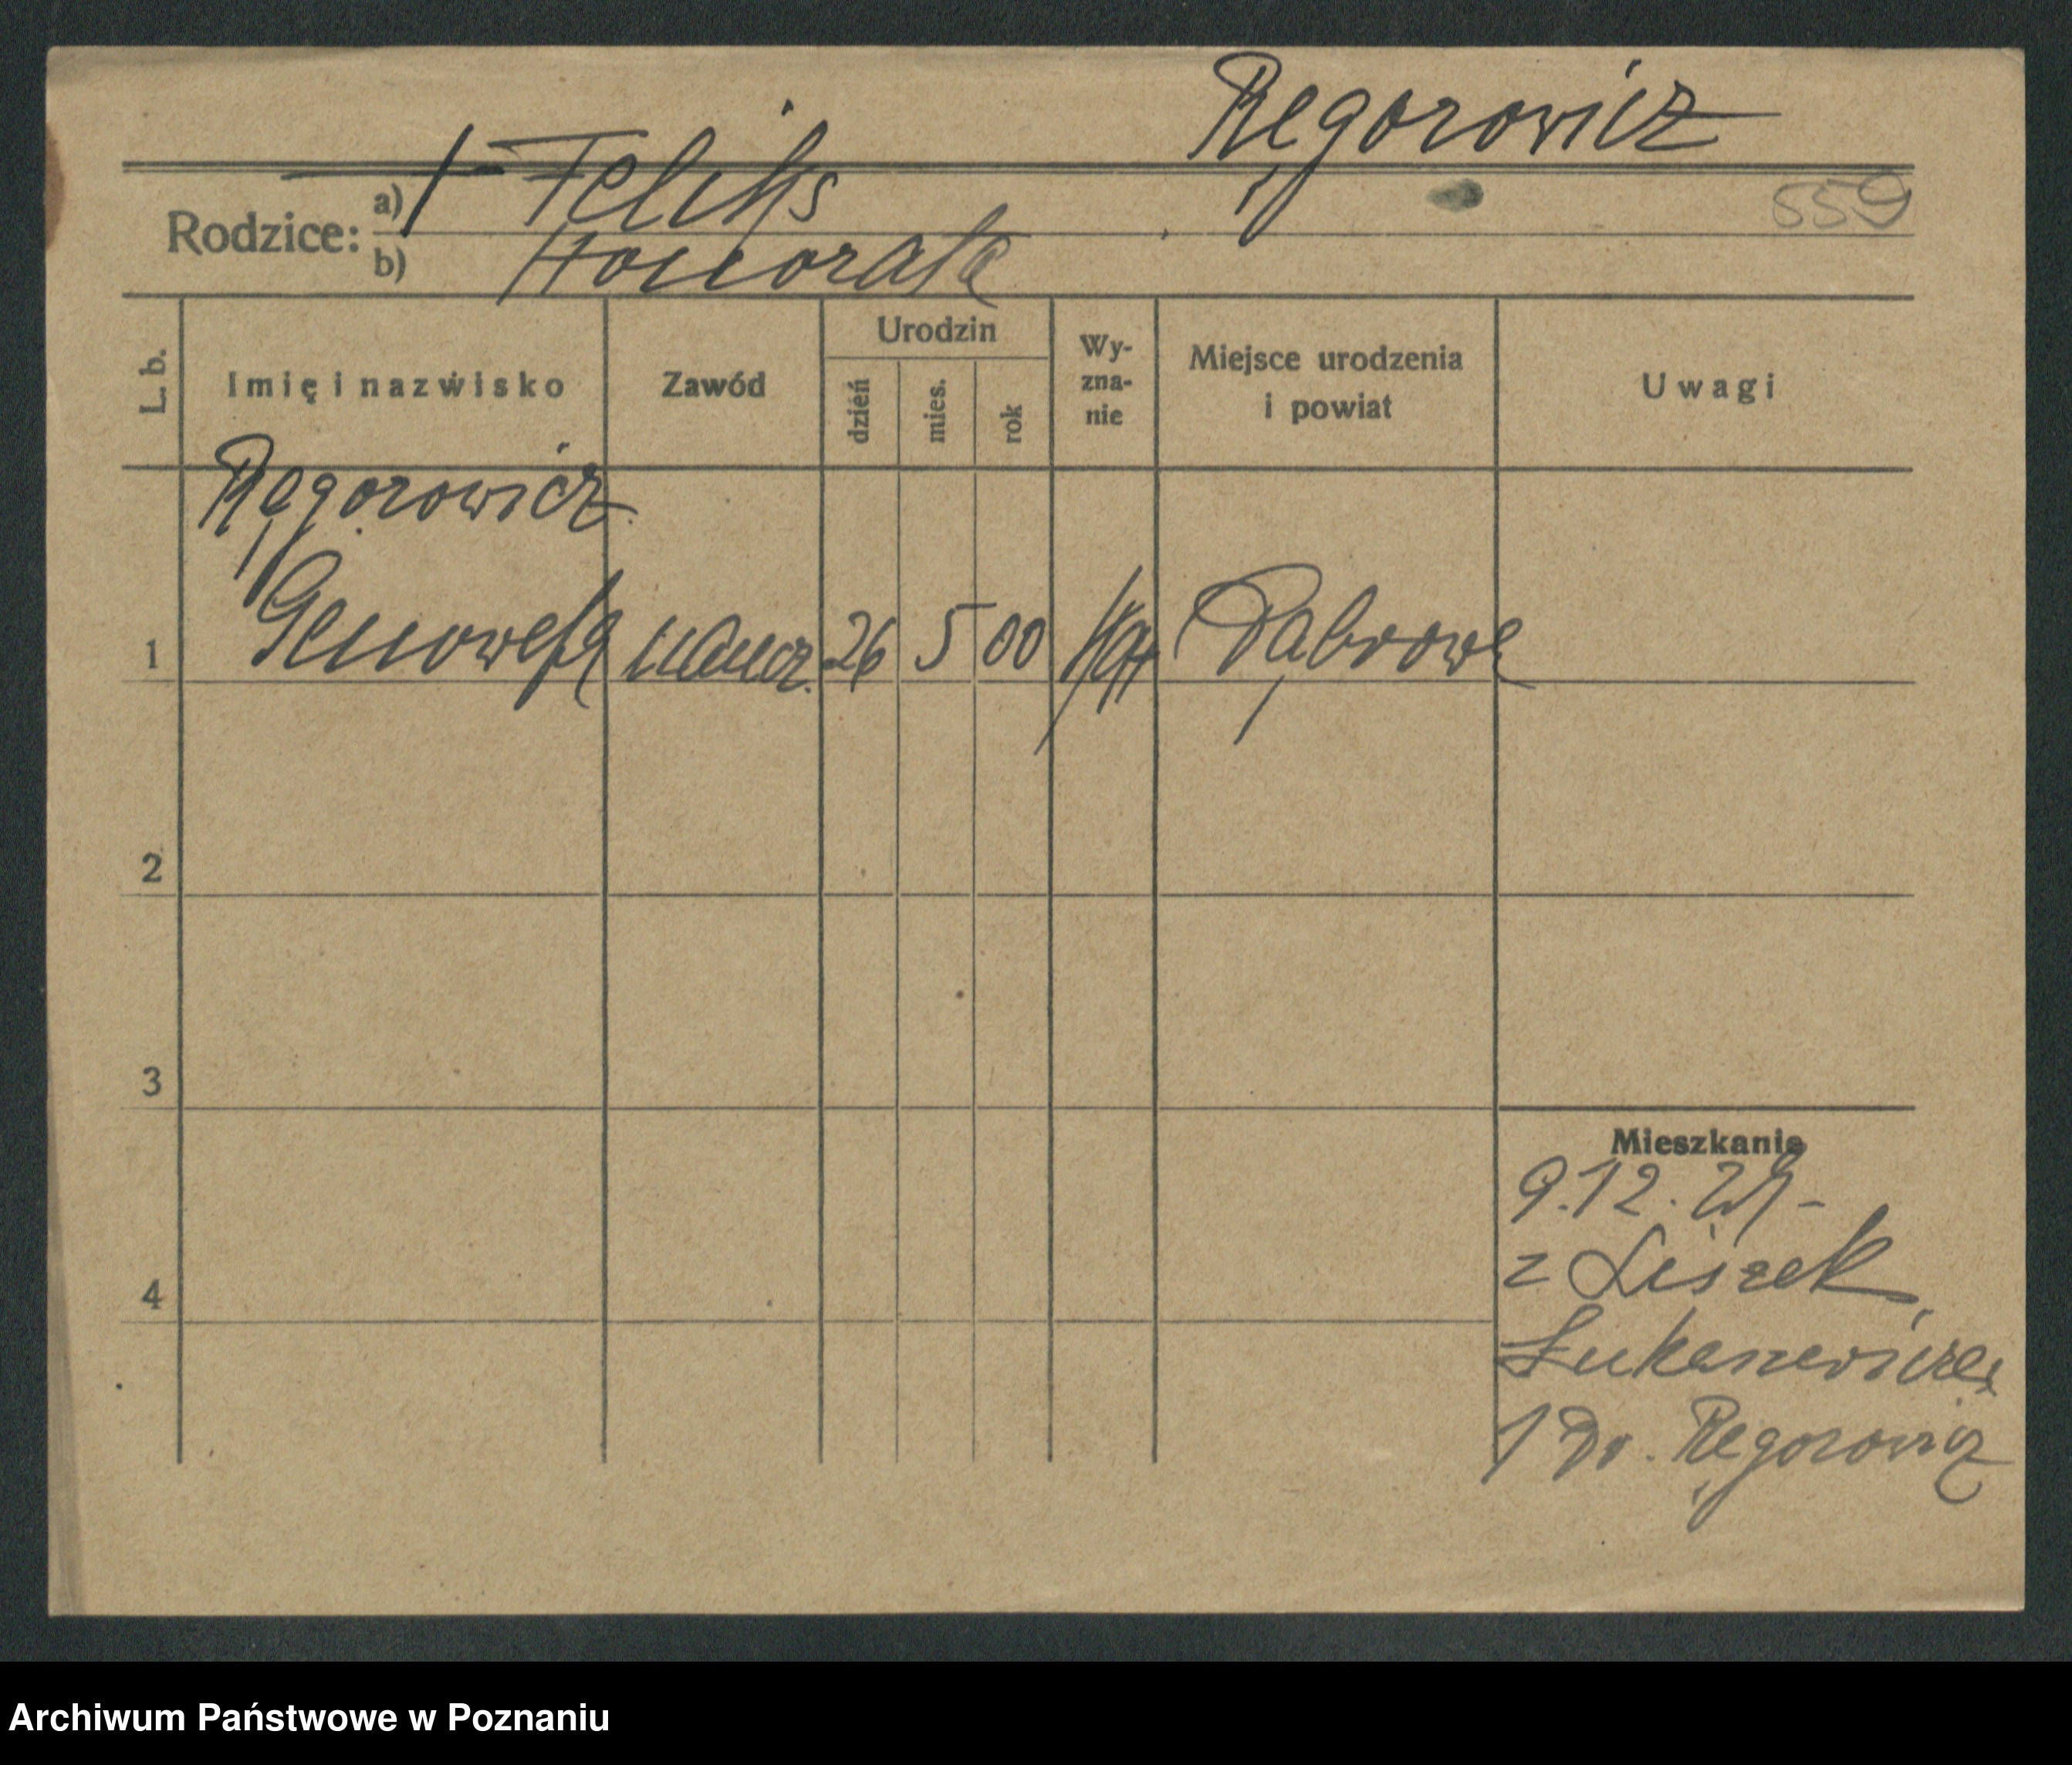 Ręgorowicz
1 Feliks
559
Rodzice: a)
b) Honorata
L. b.
Imię i nazwisko
Zawód
Urodzin
dzień
mies.
rok
Wy-
zna-
nie
Miejsce urodzenia
i powiat
Uwagi
Ręgorowicz
1 Genowefa naucz. 26 5 00 Dąbrowa
2
3
4
Mieszkanie
9.12.
z Liszek
Łukaszewicza
1 Dr. Ręgorowicz
Archiwum Państwowe w Poznaniu